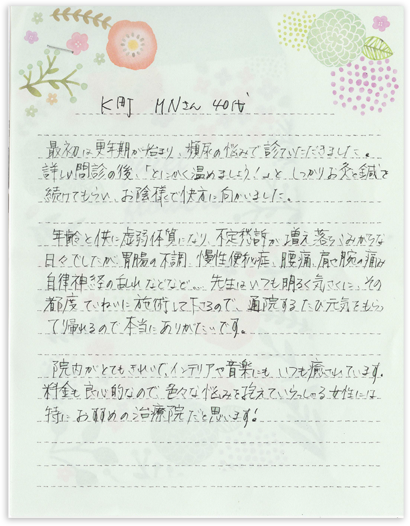 K町 M.Nさん 40代
最初は更年期が始まり、頻尿の悩みで診ていただきました。
詳しい問診の後、「とにかく温めましょう！」と、しっかりお灸と鍼を
続けてもらい、お陰様で快方に向かいました。
年齢と供に虚弱体質になり、不定愁訴が増え落ちこみがちな
日々でしたが、胃腸の不調、慢性便秘症、腰痛、肩や腕の痛み
自律神経の乱れなどなど…、先生はいつも明るく気さくに、その
都度ていねいに施術して下さるので、通院するたび元気をもら
って帰れるので、本当にありがたいです。
院内がとてもきれいで、インテリアや音楽にも、いつも癒されています。
料金も良心的なので色々な悩みを抱えていらっしゃる女性には
特にお薦めの治療院だと思います！